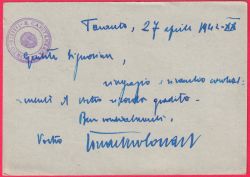 Taranto, 27 aprile 1942-XX
Gentile Signorina,
ringrazio e ricambio cordial-
menti il vostro ricordo gradito.
Ben cordialmente,
Vostro